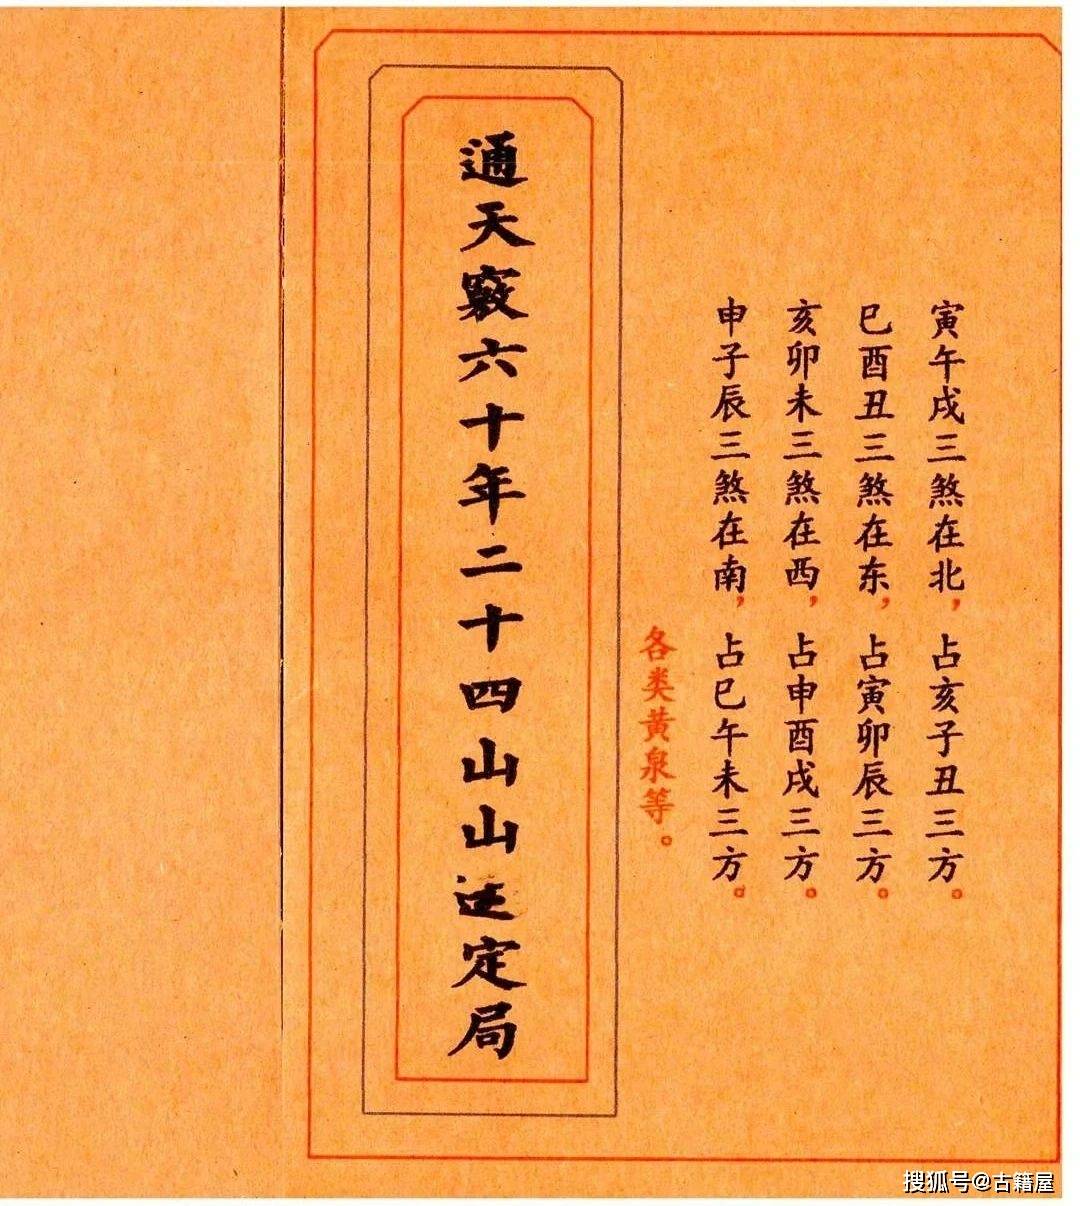 寅午戌三煞在北，占亥子丑三方。
巳酉丑三煞在东，占寅卯辰三方。
亥卯未三煞在西，占申酉戌三方。
申子辰三煞在南，占巳午未三方。
各类黄泉等。
通天竅六十年二十四山山定局
搜狐号@古籍屋